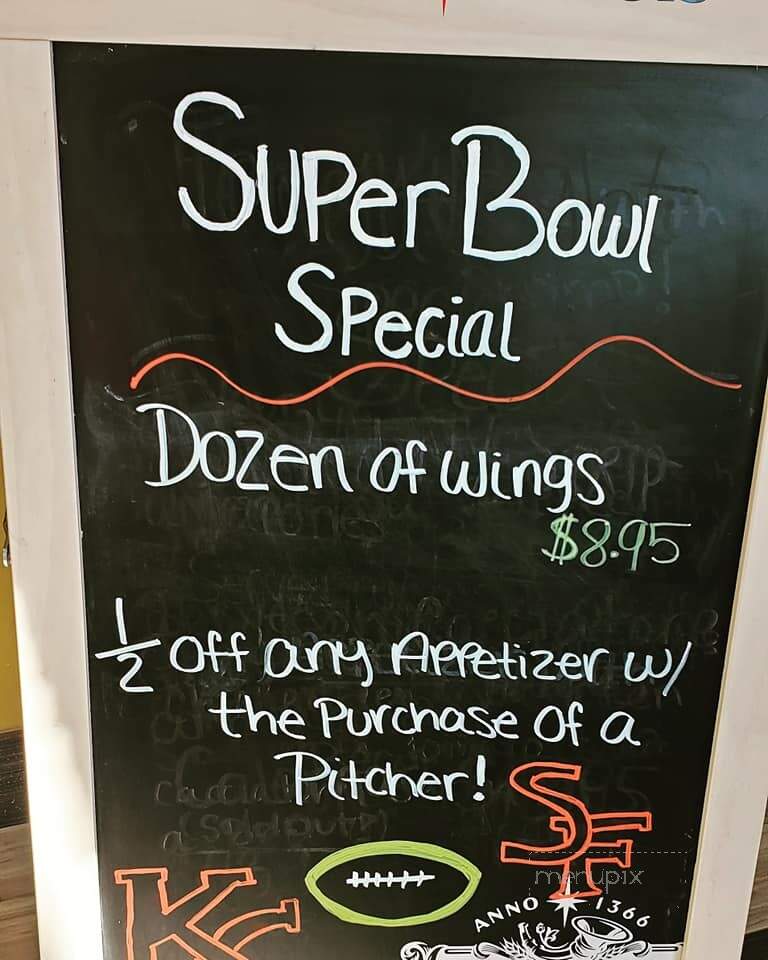 Super Bowl
Special
Dozen of wings
$8.95
1/2 off any Appetizer w/
the Purchase of a
Pitcher!
SF
menupix
KC
ANNO 1366